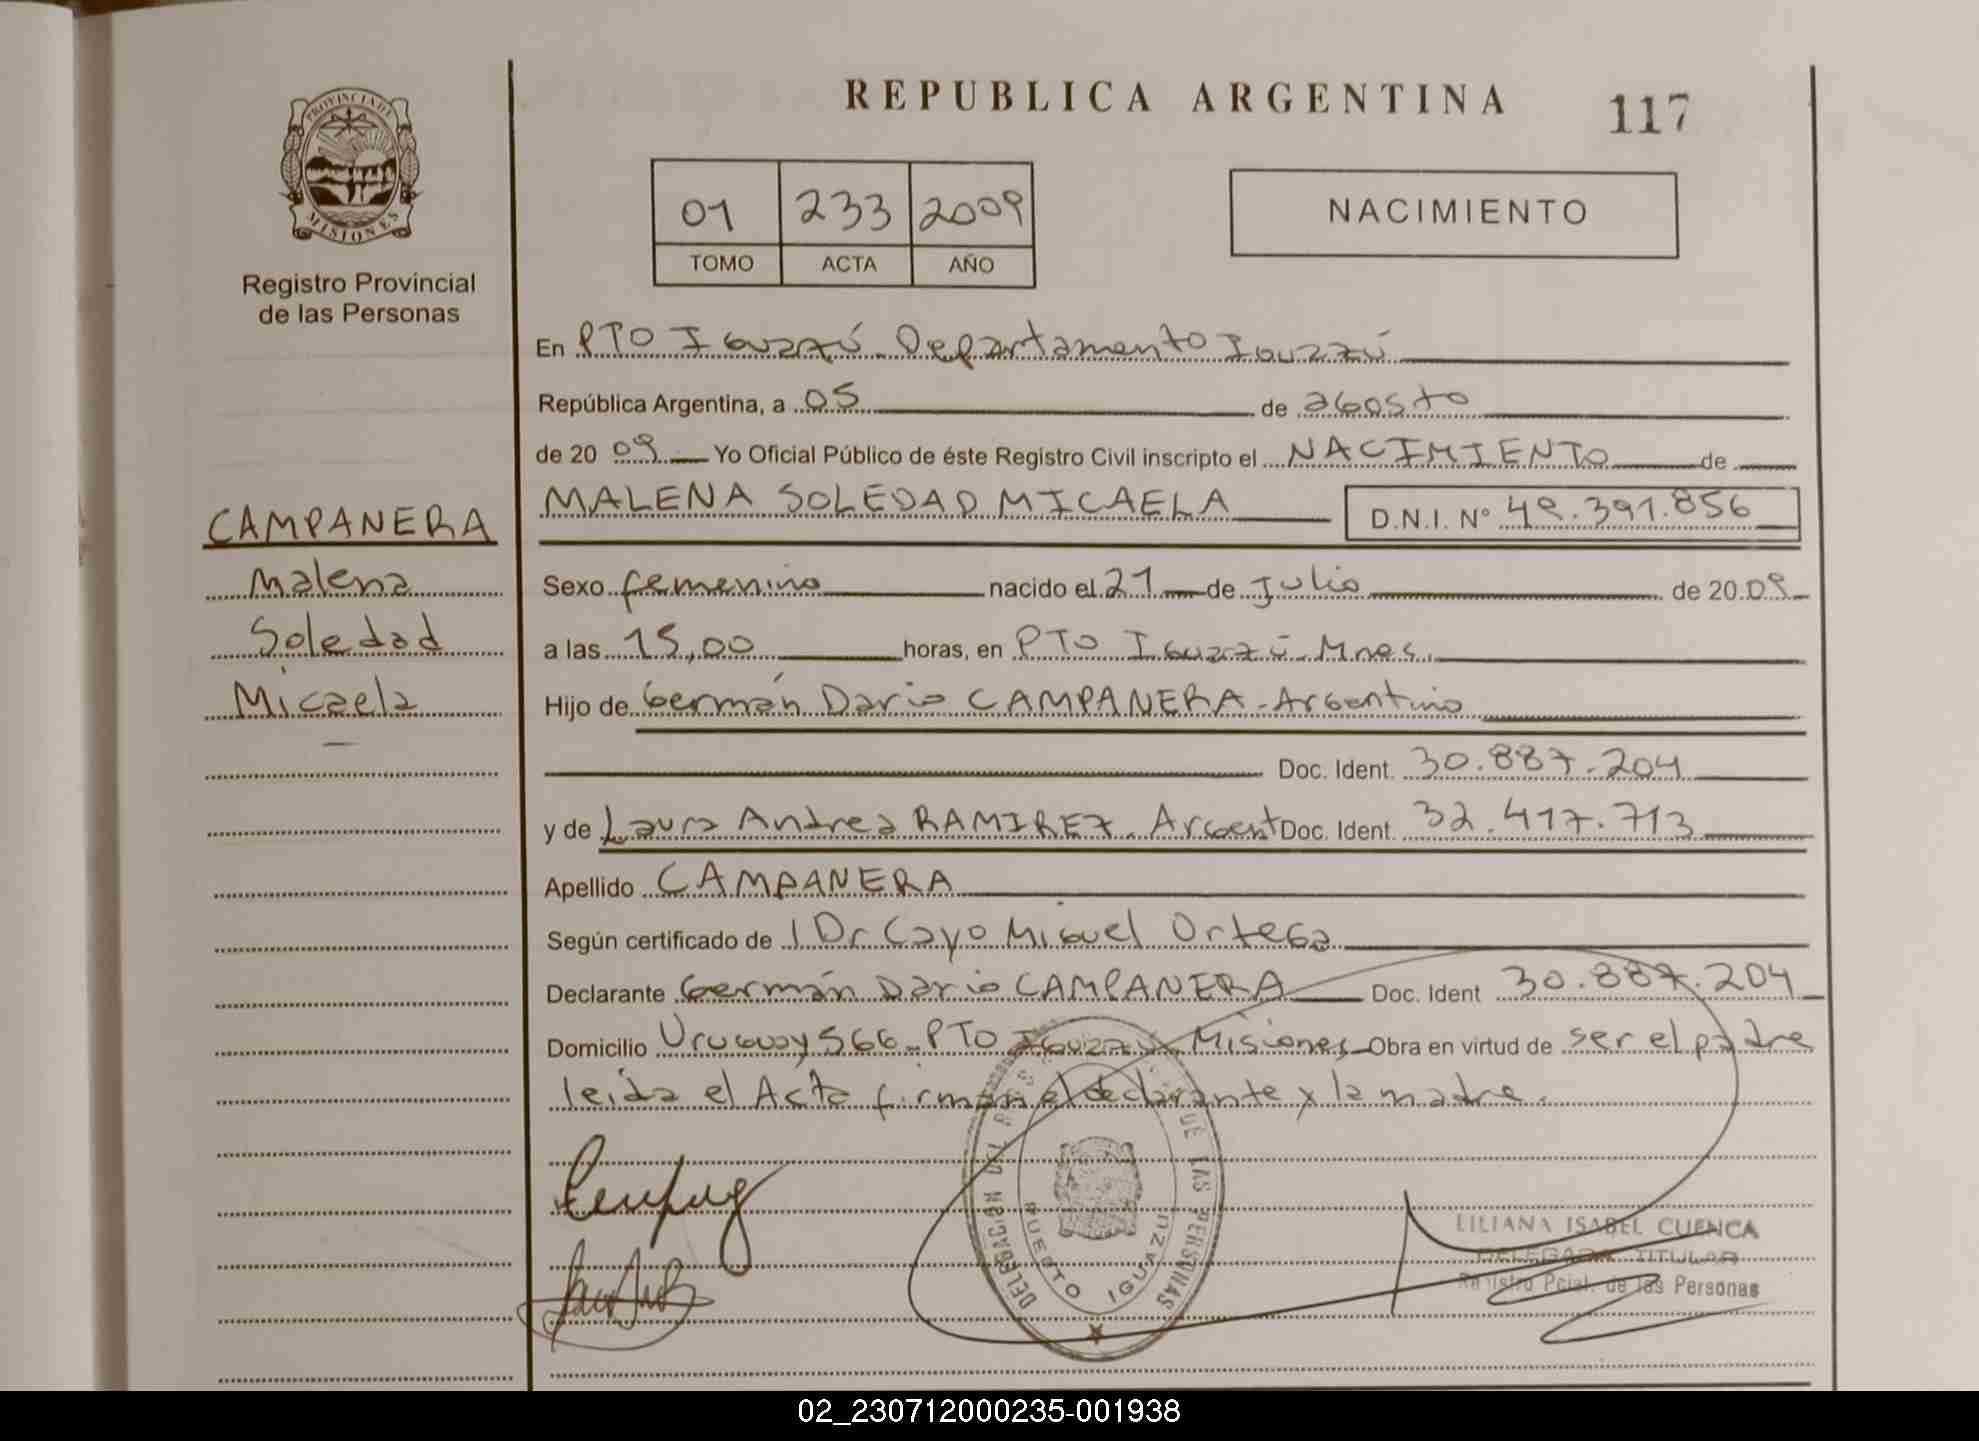 REPUBLICA ARGENTINA
117
PROVINCIA DE
MISIONES
Registro Provincial
de las Personas
01 233 2009
TOMO ACTA AÑO
NACIMIENTO
CAMPANERA
Malena
Soledad
Micaela
En PTO Iguazú. Departamento Iguazú
República Argentina, a 05 de agosto
de 2009 Yo Oficial Público de éste Registro Civil inscripto el NACIMIENTO de
MALENA SOLEDAD MICAELA D.N.I. Nº 49.391.856
Sexo femenino nacido el 21 de Julio de 20.09
a las 15,00 horas, en PTO Iguazú - Mnes.
Hijo de Germán Dario CAMPANERA - Argentino
Doc. Ident. 30.887.204
y de Laura Andrea RAMIREZ. Argent Doc. Ident. 32.417.713
Apellido CAMPANERA
Según certificado de Dr Cayo Miguel Ortega
Declarante Germán Dario CAMPANERA Doc. Ident 30.887.204
Domicilio Uruguay 566 - PTO Iguazú Misiones Obra en virtud de ser el padre
leida el Acta firman el declarante y la madre.
DE LAS PERSONAS
DELEGACION
PUERTO IGUAZU
LILIANA ISABEL CUENCA
DELEGADA TITULAR
Registro Pcial. de las Personas
02_230712000235-001938